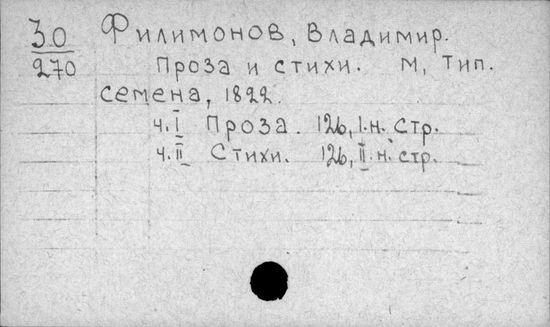 30 Филимонов, Владимир.
270 Проза и стихи. М, Тип.
семена, 1822.
ч. I Проза. 126, I.н. стр.
ч. II Стихи. 126, II.н. стр.